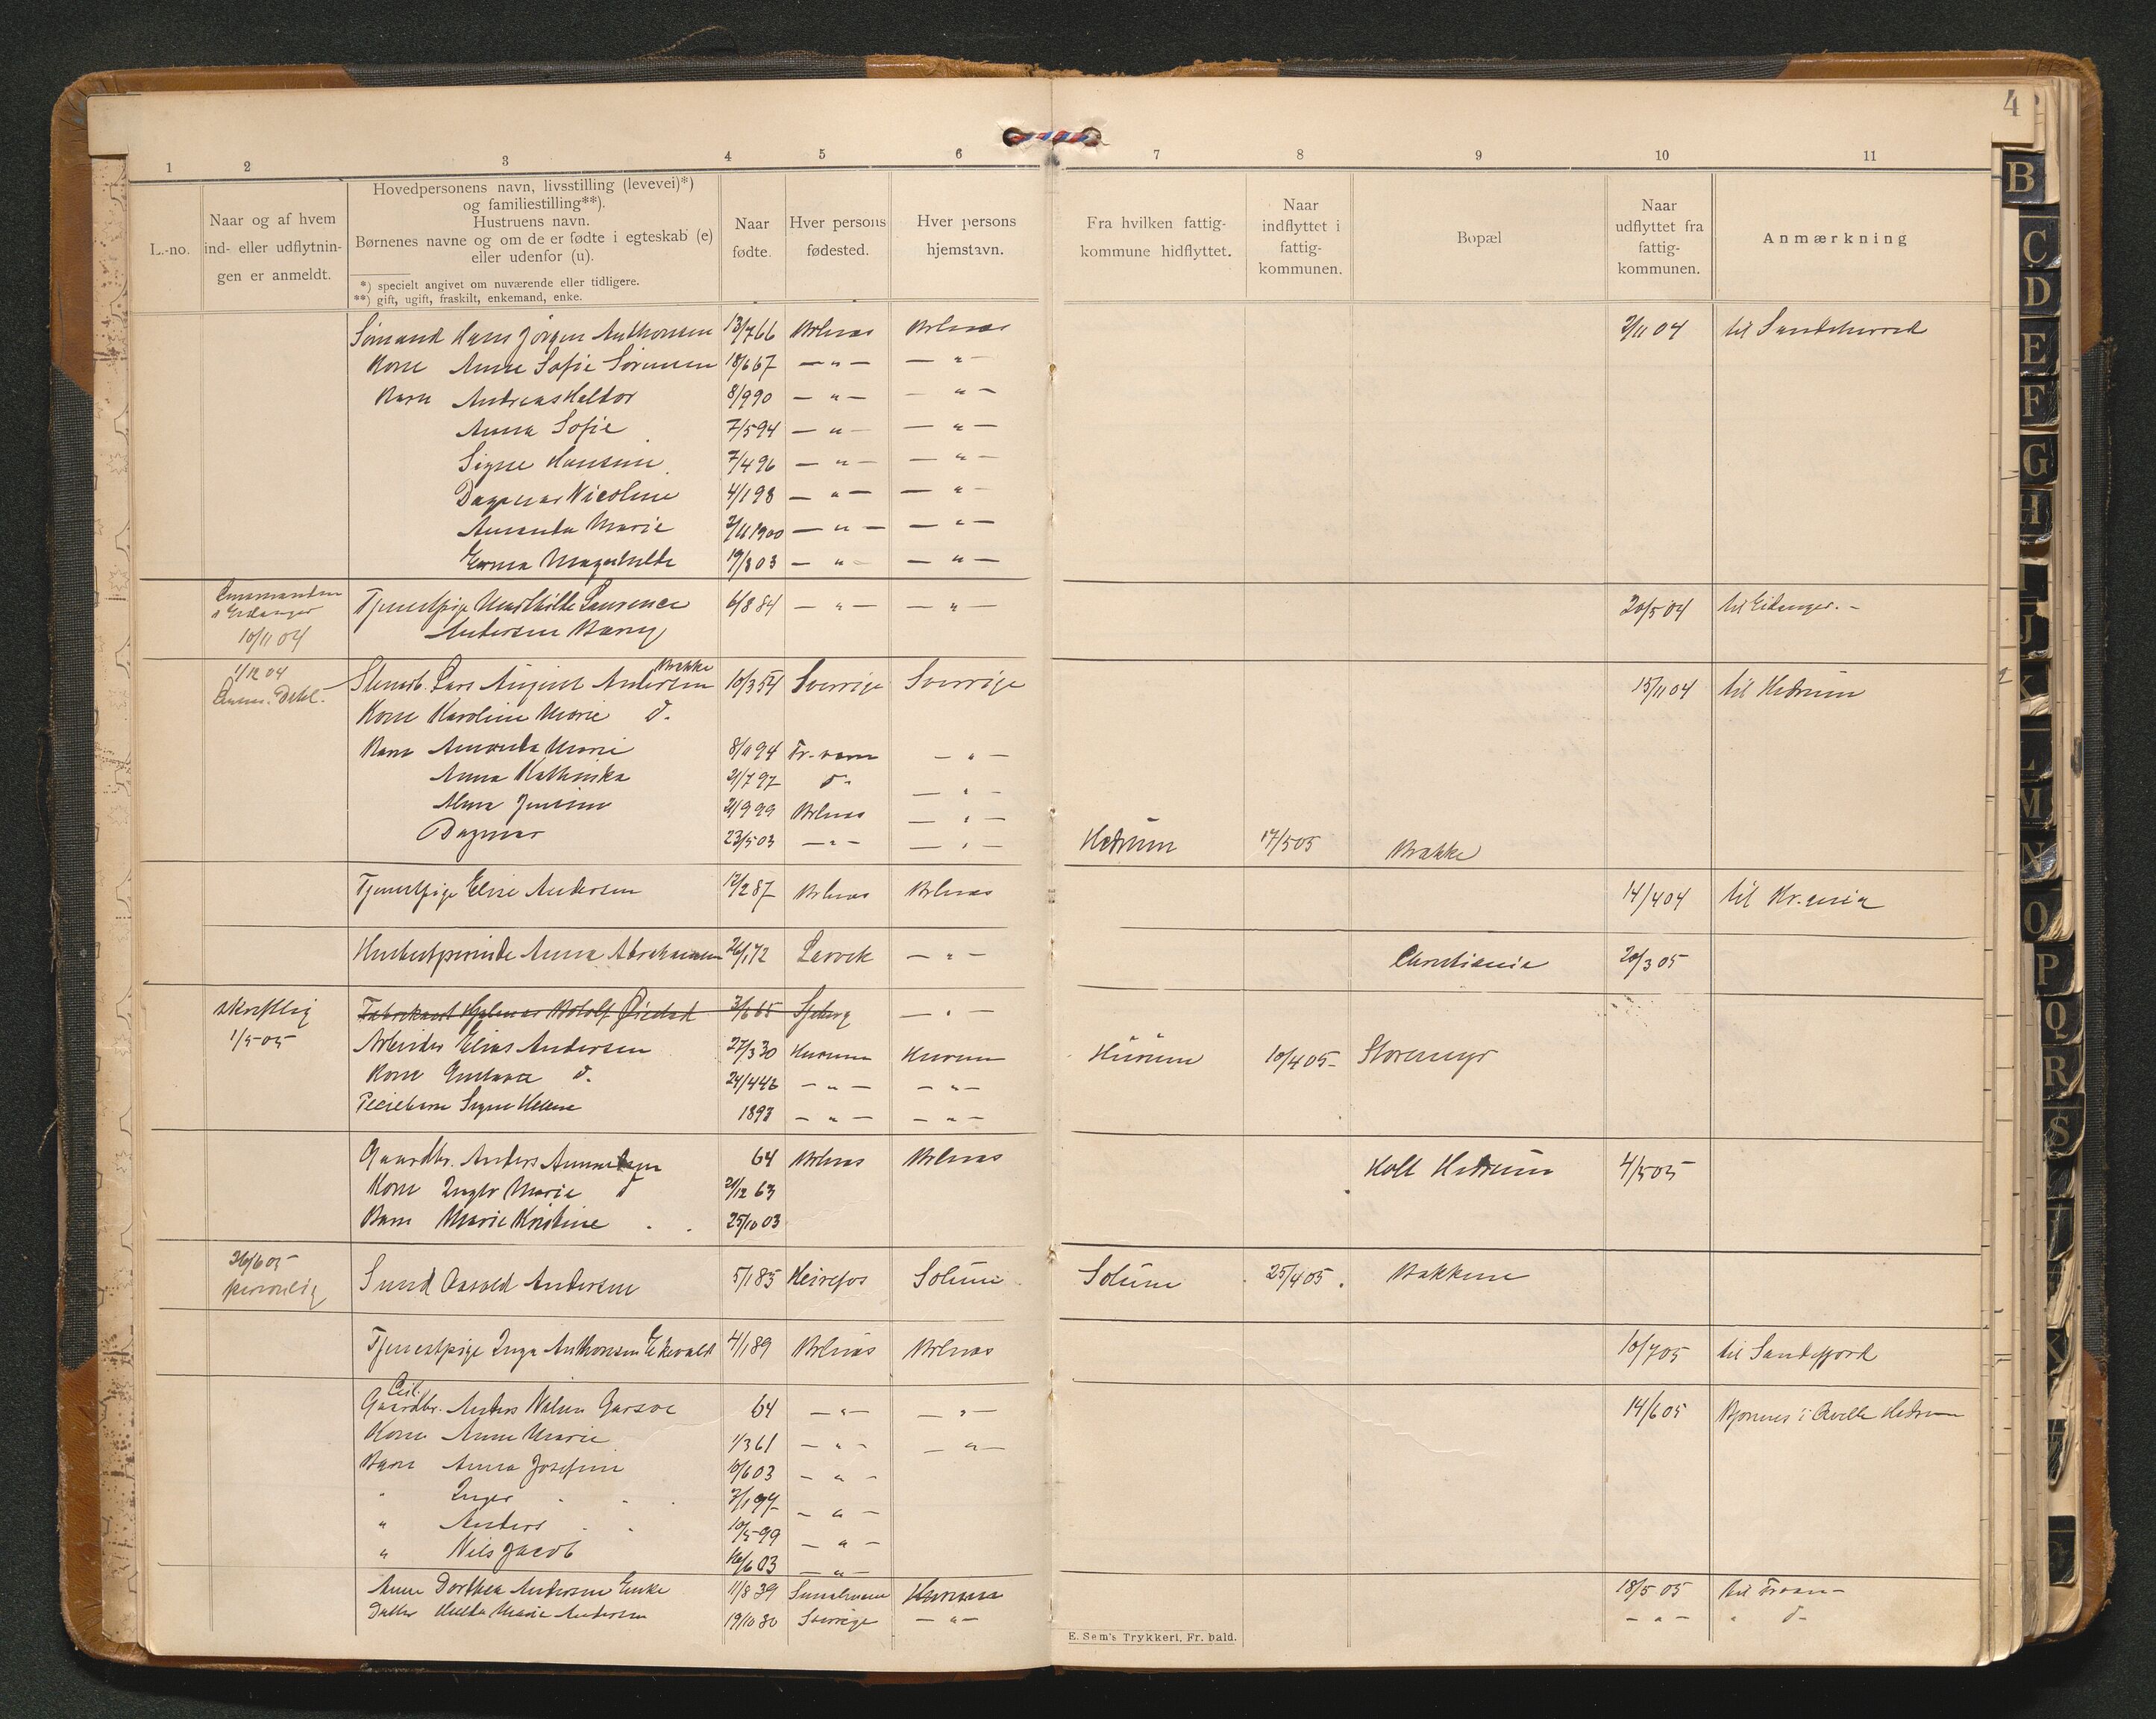 4
1 2 3 4 5 6 7 8 9 10 11
L.-no.
Naar og af hvem
ind- eller udflytnin-
gen er anmeldt.
Hovedpersonens navn, livsstilling (levevei)*)
og familiestilling**).
Hustruens navn.
Børnenes navne og om de er fødte i egteskab (e)
eller udenfor (u).
*) specielt angivet om nuværende eller tidligere.
**) gift, ugift, fraskilt, enkemand, enke.
Naar
fødte.
Hver persons
fødested.
Hver persons
hjemstavn.
Fra hvilken fattig-
kommune hidflyttet.
Naar
indflyttet i
fattig-
kommunen.
Bopæl
Naar
udflyttet fra
fattig-
kommunen.
Anmærkning
Sømand Hans Jørgen Anthonsen 13/7 66 Brlnæs Brlnæs 2/11 04 til Sandeherred
Kone Anne Sofie Sørensen 18/6 67 — " — — " —
Barn Andreas Haldor 8/9 90 — " — — " —
Anna Sofie 7/5 94 — " — — " —
Signe Hansine 7/4 96 — " — — " —
Dagmar Nicoline 4/1 98 — " — — " —
Amanda Marie 2/11 1900 — " — — " —
Erna Magnhilde 19/3 03 — " — — " —
10/11 04 Tjenestpige Mathilde Laurence 6/8 84 — " — — " — 20/5 04 til Eidanger. -
Andersen
1/12 04 Lars August Andersen Brække 10/3 54 Sverrige Sverrige 15/11 04 til Hedrum
Kone Karoline Marie d.
Barn Amanda Marie 8/11 94 Fr.værn — " —
Anna Kathinka 21/7 97 d- — " —
Alma Jensine 21/9 99 Brlnæs — " —
Dagmar 23/5 03 — " — — " — Hedrum 17/5 05 Brække
Tjenestpige Elise Andersen 12/2 87 Brlnæs Brlnæs 14/4 04 til Kr.ania
Anna Abrahamsen 26/1 72 Larvik — " — Christiania 20/3 05
skriftlig Fabrikant Hjalmar 3/6 65 — " —
1/5 05 Arbeider Elias Andersen 27/3 30 Hurum Hurum Hurum 10/4 05 - Storemyr
Kone Gustava d. 24/4 46 — " — — " —
Pleiebarn Signe Helene 1893 — " — — " —
Gaardbr. Anders 64 Brlnæs Brlnæs Holt Hedrum 4/5 05
Kone Inger Marie d 21/12 63
Barn Marie Kristine 25/10 03
26/6 05
personlig Smed Oswald Andersen 5/1 85 Herrefos Solum Solum 25/4 05. Bakkene
Tjenestpige Inga Anthonsen Ekevald 4/1 89 Brlnæs Brlnæs 10/7 05 til Sandefjord
Gaardbr. Anders Nilsen 64 — " — — " — 14/6 05 Hedrum
Kone Anne Marie 1/3 61 — " — — " —
Barn Anna Josefine 10/6 03 — " —
" Inger 7/1 97 — " —
" Anders 10/5 99 — " —
" Nils Jacob 16/6 03 — " —
Anne Dorthea Andersen Enke 11/8 39 Hurum 18/5 05 til Fr.værn
Datter Hulda Marie Andersen 19/10 80 Sverrige — " — — " — " d-
E. Sem's Trykkeri, Fr.hald.
B
C
D
E
F
G
H
I
J
K
L
M
N
O
P
Q
R
S